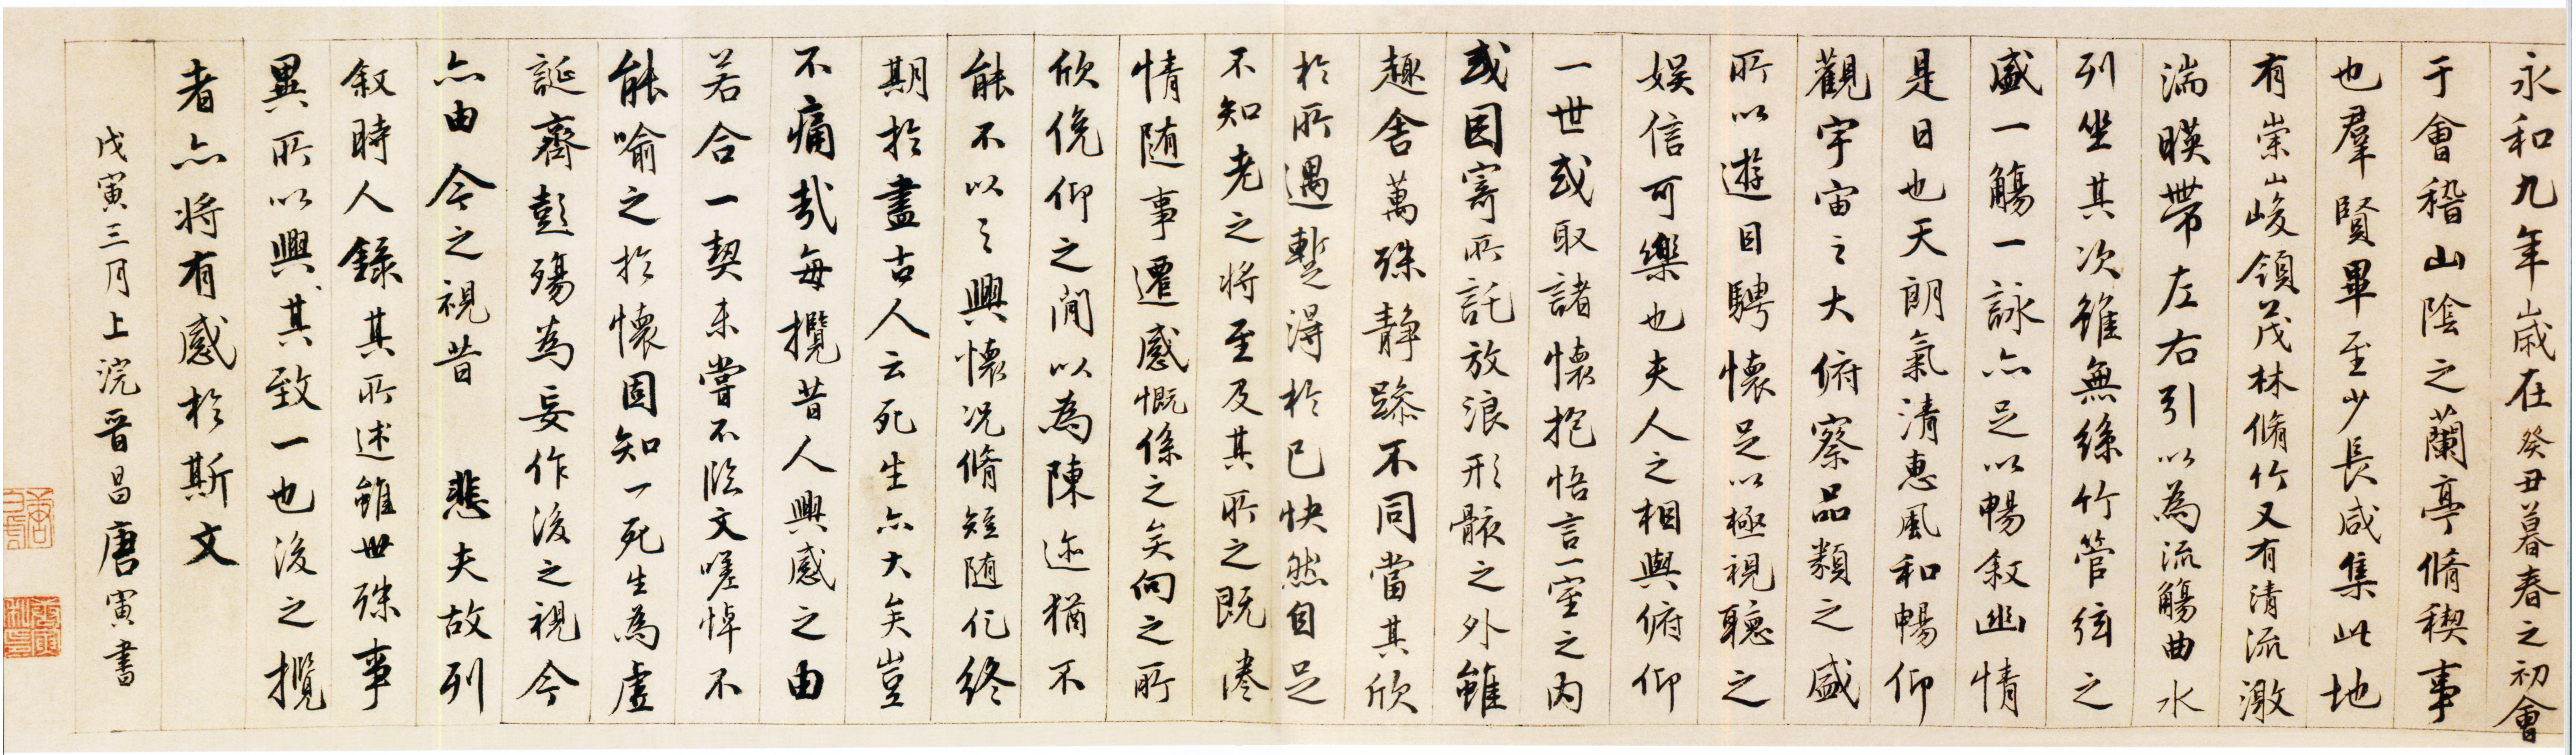 永和九年歲在癸丑暮春之初會
于會稽山陰之蘭亭脩稧事
也羣賢畢至少長咸集此地
有崇山峻領茂林脩竹又有清流激
湍暎帶左右引以為流觴曲水
列坐其次雖無絲竹管弦之
盛一觴一詠亦足以暢叙幽情
是日也天朗氣清惠風和暢仰
觀宇宙之大俯察品類之盛
所以遊目騁懷足以極視聽之
娛信可樂也夫人之相與俯仰
一世或取諸懷抱悟言一室之內
或因寄所託放浪形骸之外雖
趣舍萬殊靜躁不同當其欣
於所遇暫得於己快然自足
不知老之將至及其所之既惓
情隨事遷感慨係之矣向之所
欣俛仰之間以為陳迹猶不
能不以之興懷況脩短隨化終
期於盡古人云死生亦大矣豈
不痛哉每攬昔人興感之由
若合一契未嘗不臨文嗟悼不
能喻之於懷固知一死生為虛
誕齊彭殤為妄作後之視今
亦由今之視昔 悲夫故列
叙時人錄其所述雖世殊事
異所以興其致一也後之攬
者亦將有感於斯文
戊寅三月上浣晉昌唐寅書